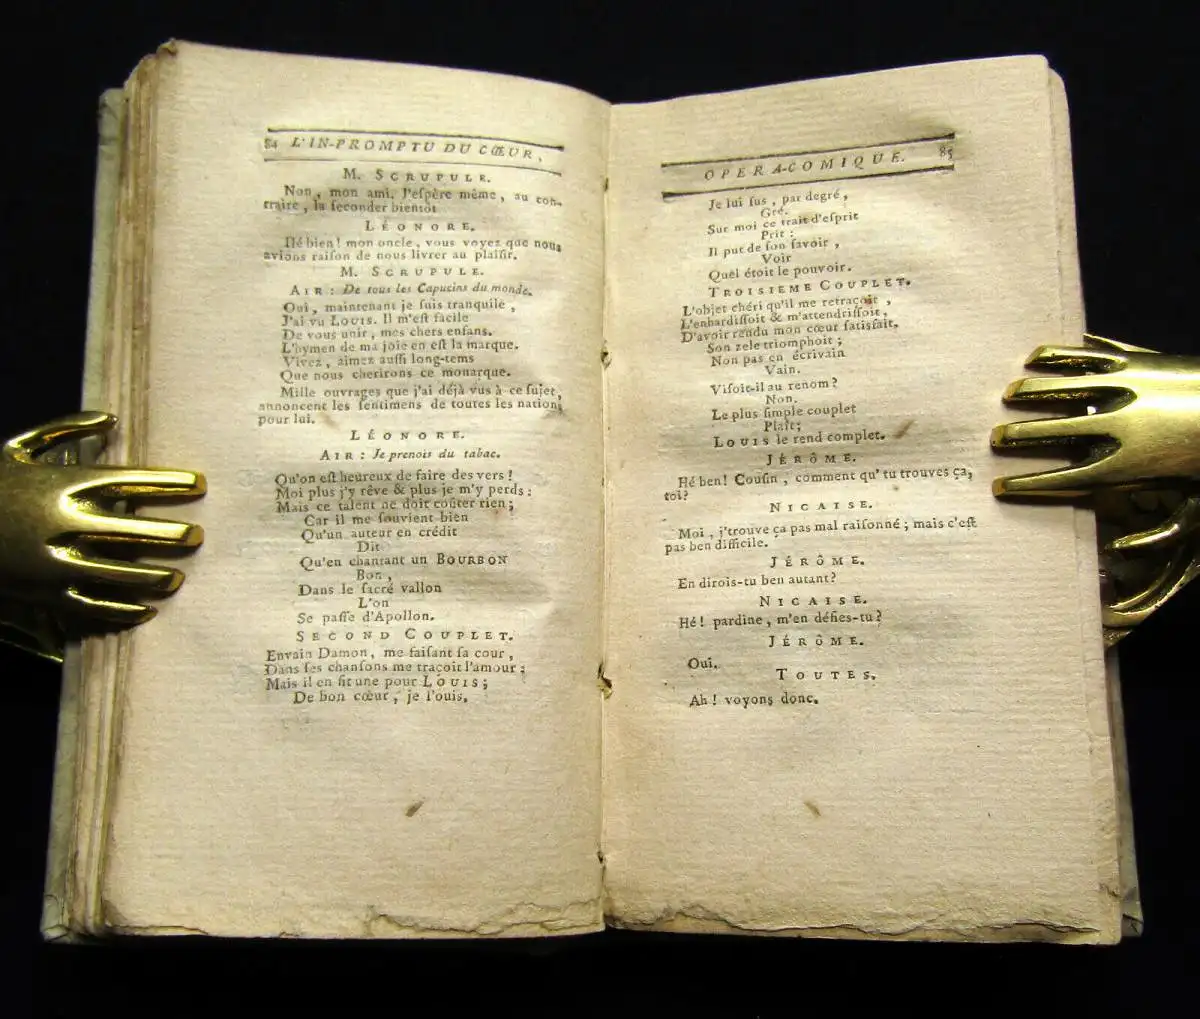 84 L'IN-PROMPTU DU CŒUR,
M. SCRUPULE.
Non, mon ami. J'eſpère même, au con-
traire, la ſeconder bientôt
LÉONORE.
Hé bien! mon oncle, vous voyez que nous
avions raiſon de nous livrer au plaiſir.
M. SCRUPULE.
AIR: De tous les Capucins du monde.
Oui, maintenant je ſuis tranquile,
J'ai vu LOUIS. Il m'eſt facile
De vous unir, mes chers enfans.
L'hymen de ma joie en eſt la marque.
Vivez, aimez auſſi long-tems
Que nous cherirons ce monarque.
Mille ouvrages que j'ai déjà vus à ce ſujet,
annoncent les ſentimens de toutes les nations
pour lui.
LÉONORE.
AIR: Je prenois du tabac.
Qu'on eſt heureux de faire des vers!
Moi plus j'y rêve & plus je m'y perds:
Mais ce talent ne doit coûter rien;
Car il me ſouvient bien
Qu'un auteur en crédit
Dit
Qu'en chantant un BOURBON
Bon,
Dans le ſacré vallon
L'on
Se paſſe d'Apollon.
SECOND COUPLET.
Envain Damon, me faiſant ſa cour,
Dans ſes chanſons me traçoit l'amour;
Mais il en fit une pour LOUIS;
De bon cœur, je l'ouis.
OPERA-COMIQUE. 85
Je lui ſus, par degré,
Gré.
Sur moi ce trait d'eſprit
Prit:
Il put de ſon ſavoir,
Voir
Quel étoit le pouvoir.
TROISIEME COUPLET.
L'objet chéri qu'il me retraçoit,
L'enhardiſſoit & m'attendriſſoit,
D'avoir rendu mon cœur ſatisfait.
Son zele triomphoit;
Non pas en écrivain
Vain.
Viſoit-il au renom?
Non.
Le plus ſimple couplet
Plaît;
LOUIS le rend complet.
JÉRÔME.
Hé ben! Couſin, comment qu'tu trouves ça,
toi?
NICAISE.
Moi, j'trouve ça pas mal raiſonné; mais c'eſt
pas ben difficile.
JÉRÔME.
En dirois-tu ben autant?
NICAISE.
Hé! pardine, m'en défies-tu?
JÉRÔME.
Oui.
TOUTES.
Ah! voyons donc.